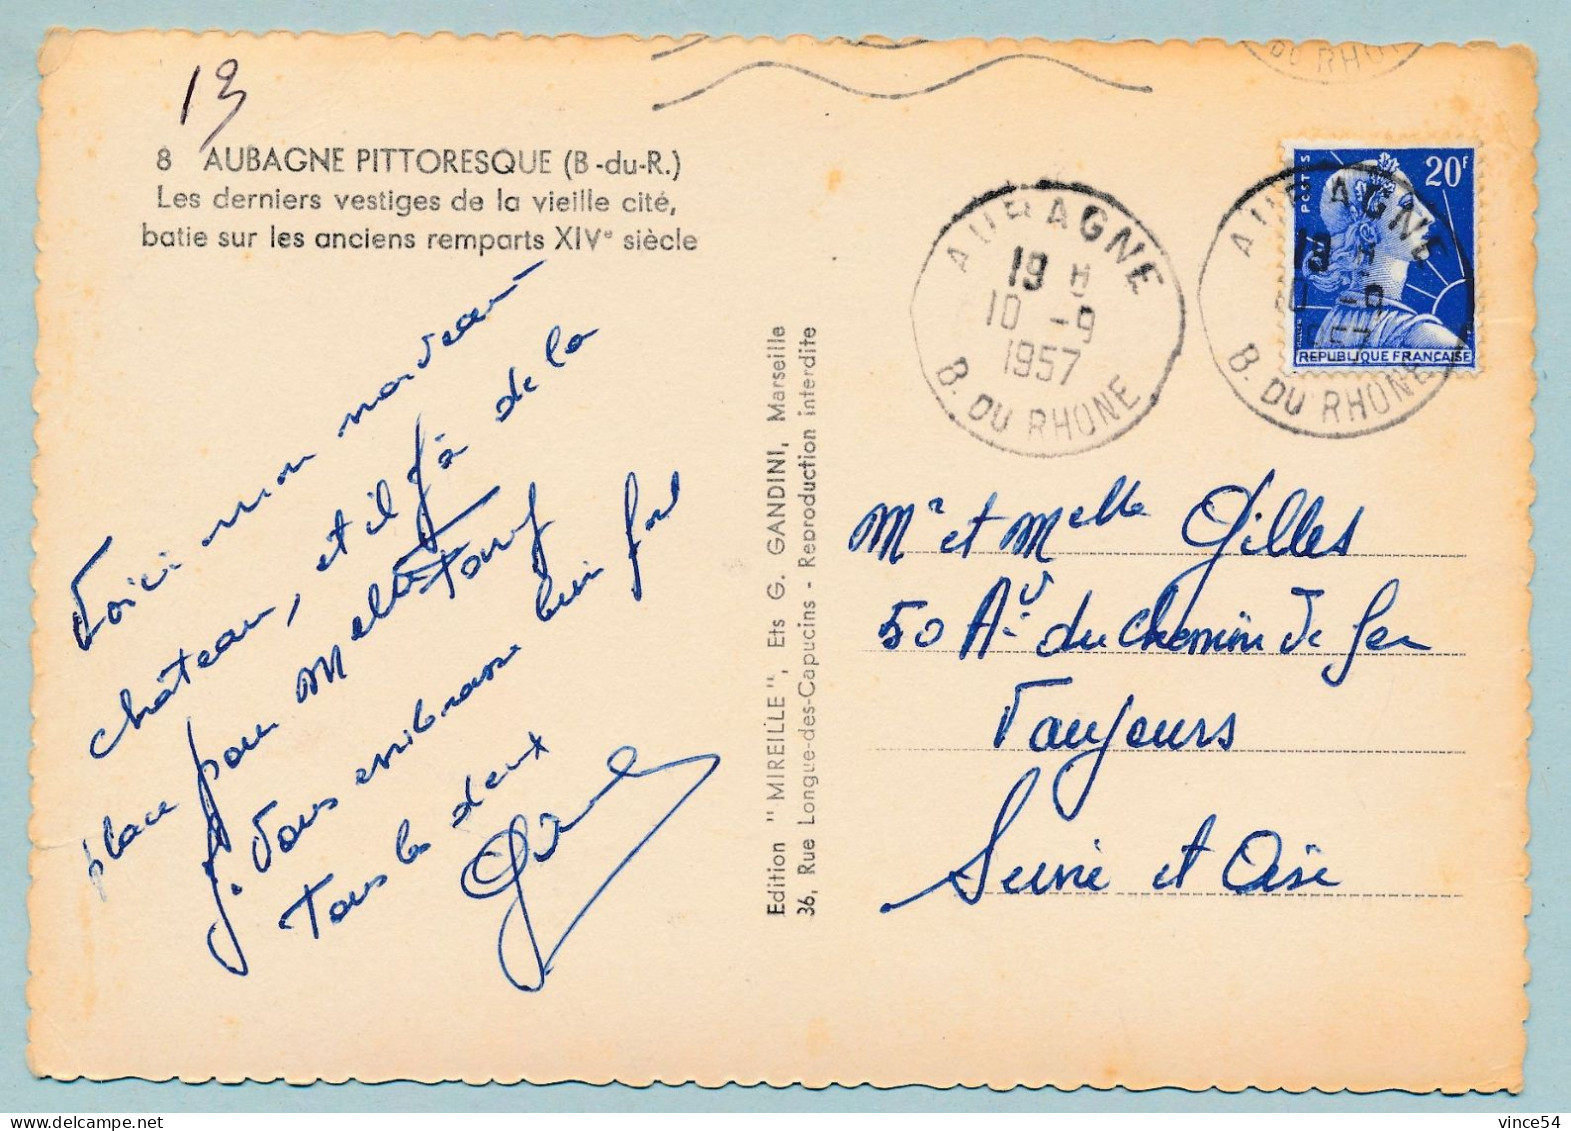 19
8 AUBAGNE PITTORESQUE (B-du-R.)
Les derniers vestiges de la vieille cité,
batie sur les anciens remparts XIVe siècle
Voici mon nouveau
château, et il y a de la
place pour Melle Touf
J. Vous embrasse bien fort
Tous les deux
Edition " MIREILLE ", Ets G. GANDINI, Marseille
36, Rue Longue-des-Capucins - Reproduction interdite
DU RHO
AUBAGNE
19 H
10 -9
1957
B. DU RHONE
POSTES
20F
REPUBLIQUE FRANÇAISE
AUBAGNE
19 H
10 -9
1957
B. DU RHONE
Mr et Melle Gilles
50 Av. du Chemin de fer
Vaujours
Seine et Oise
vince54